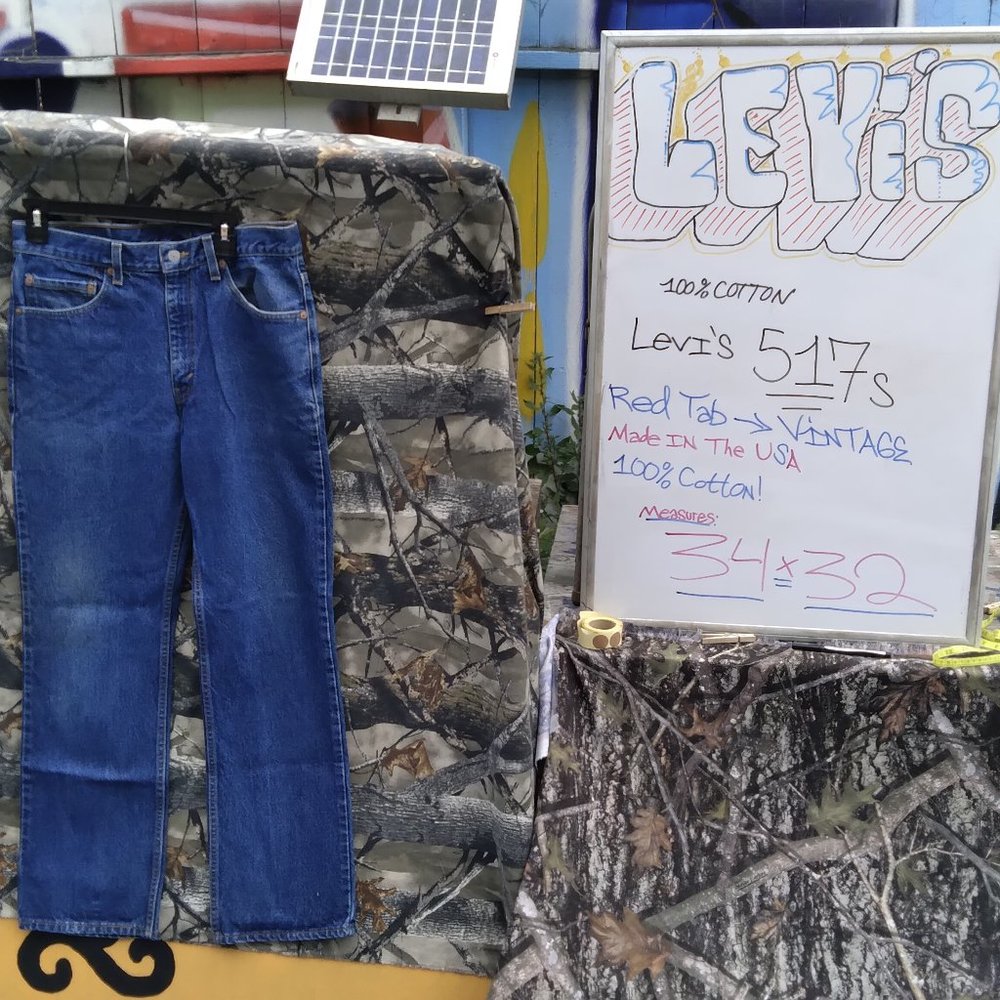 LEVi'S
100% COTTON
Levi's 517s
Red Tab → ViNTAGE
Made IN The USA
100% Cotton!
Measures:
34 x 32